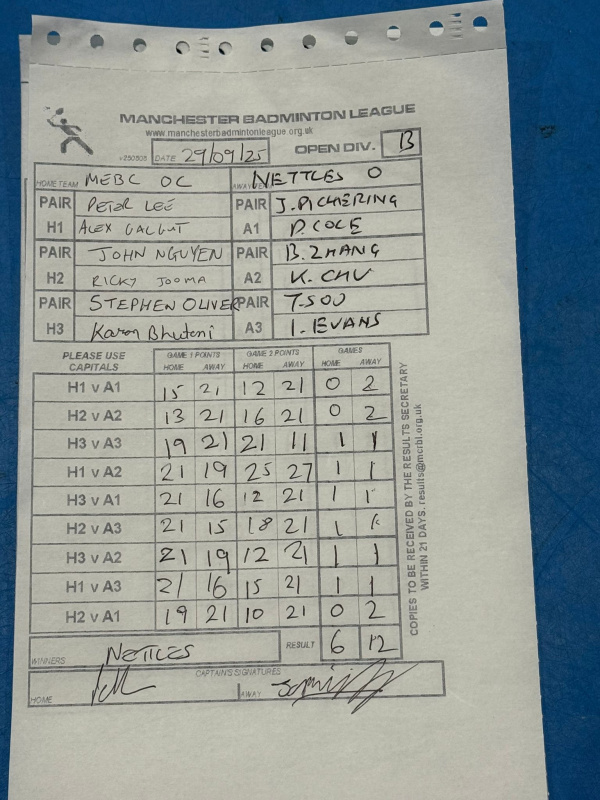 MANCHESTER BADMINTON LEAGUE
www.manchesterbadmintonleague.org.uk
v250805 DATE 29/09/25 OPEN DIV. B
HOME TEAM MEBC OC AWAY TEAM NETTLES O
PAIR PETER LEE PAIR J. PICKERING
H1 ALEX GALGUT A1 D. COLE
PAIR JOHN NGUYEN PAIR B. ZHANG
H2 RICKY JOOMA A2 K. CHU
PAIR STEPHEN OLIVER PAIR T. SOU
H3 Karan Bhutani A3 I. EVANS
PLEASE USE CAPITALS GAME 1 POINTS GAME 2 POINTS GAMES
HOME AWAY HOME AWAY HOME AWAY
H1 v A1 15 21 12 21 0 2
H2 v A2 13 21 16 21 0 2
H3 v A3 19 21 21 11 1 1
H1 v A2 21 19 25 27 1 1
H3 v A1 21 16 12 21 1 1
H2 v A3 21 15 18 21 1 1
H3 v A2 21 19 12 21 1 1
H1 v A3 21 16 15 21 1 1
H2 v A1 19 21 10 21 0 2
WINNERS NETTLES RESULT 6 12
CAPTAIN'S SIGNATURES
HOME AWAY
COPIES TO BE RECEIVED BY THE RESULTS SECRETARY
WITHIN 21 DAYS. results@mcrbl.org.uk